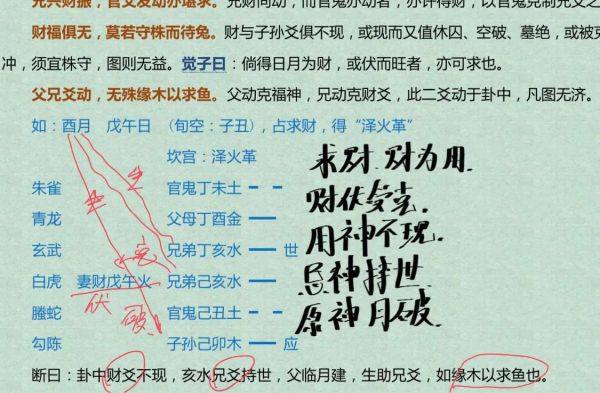 兄兴财振，官父发动亦堪求。兄财同动，而官鬼亦动者，亦许得财，以官鬼克制兄爻之
财福俱无，莫若守株而待兔。财与子孙爻俱不现，或现而又值休囚、空破、墓绝，或被
冲，须宜株守，图则无益。觉子曰：倘得日月为财，或伏而旺者，亦可求也。
父兄爻动，无殊缘木以求鱼。父动克福神，兄动克财爻，此二爻动于卦中，凡图无济。
如：酉月 戊午日（旬空：子丑），占求财，得“泽火革”
坎宫：泽火革
朱雀 官鬼丁未土
青龙 父母丁酉金
玄武 兄弟丁亥水 世
白虎 妻财戊午火 兄弟己亥水
螣蛇 官鬼己丑土
勾陈 子孙己卯木 应
断曰：卦中财爻不现，亥水兄爻持世，父临月建，生助兄爻，如缘木以求鱼也。
求财 财为用
财伏受克.
用神不现.
忌神持世.
原神月破.
生
生
克
伏
破